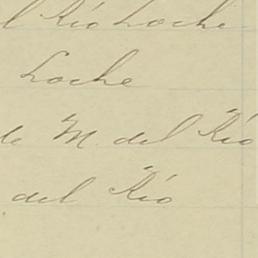 l Río Loche
Loche
de M. del Río
del Río